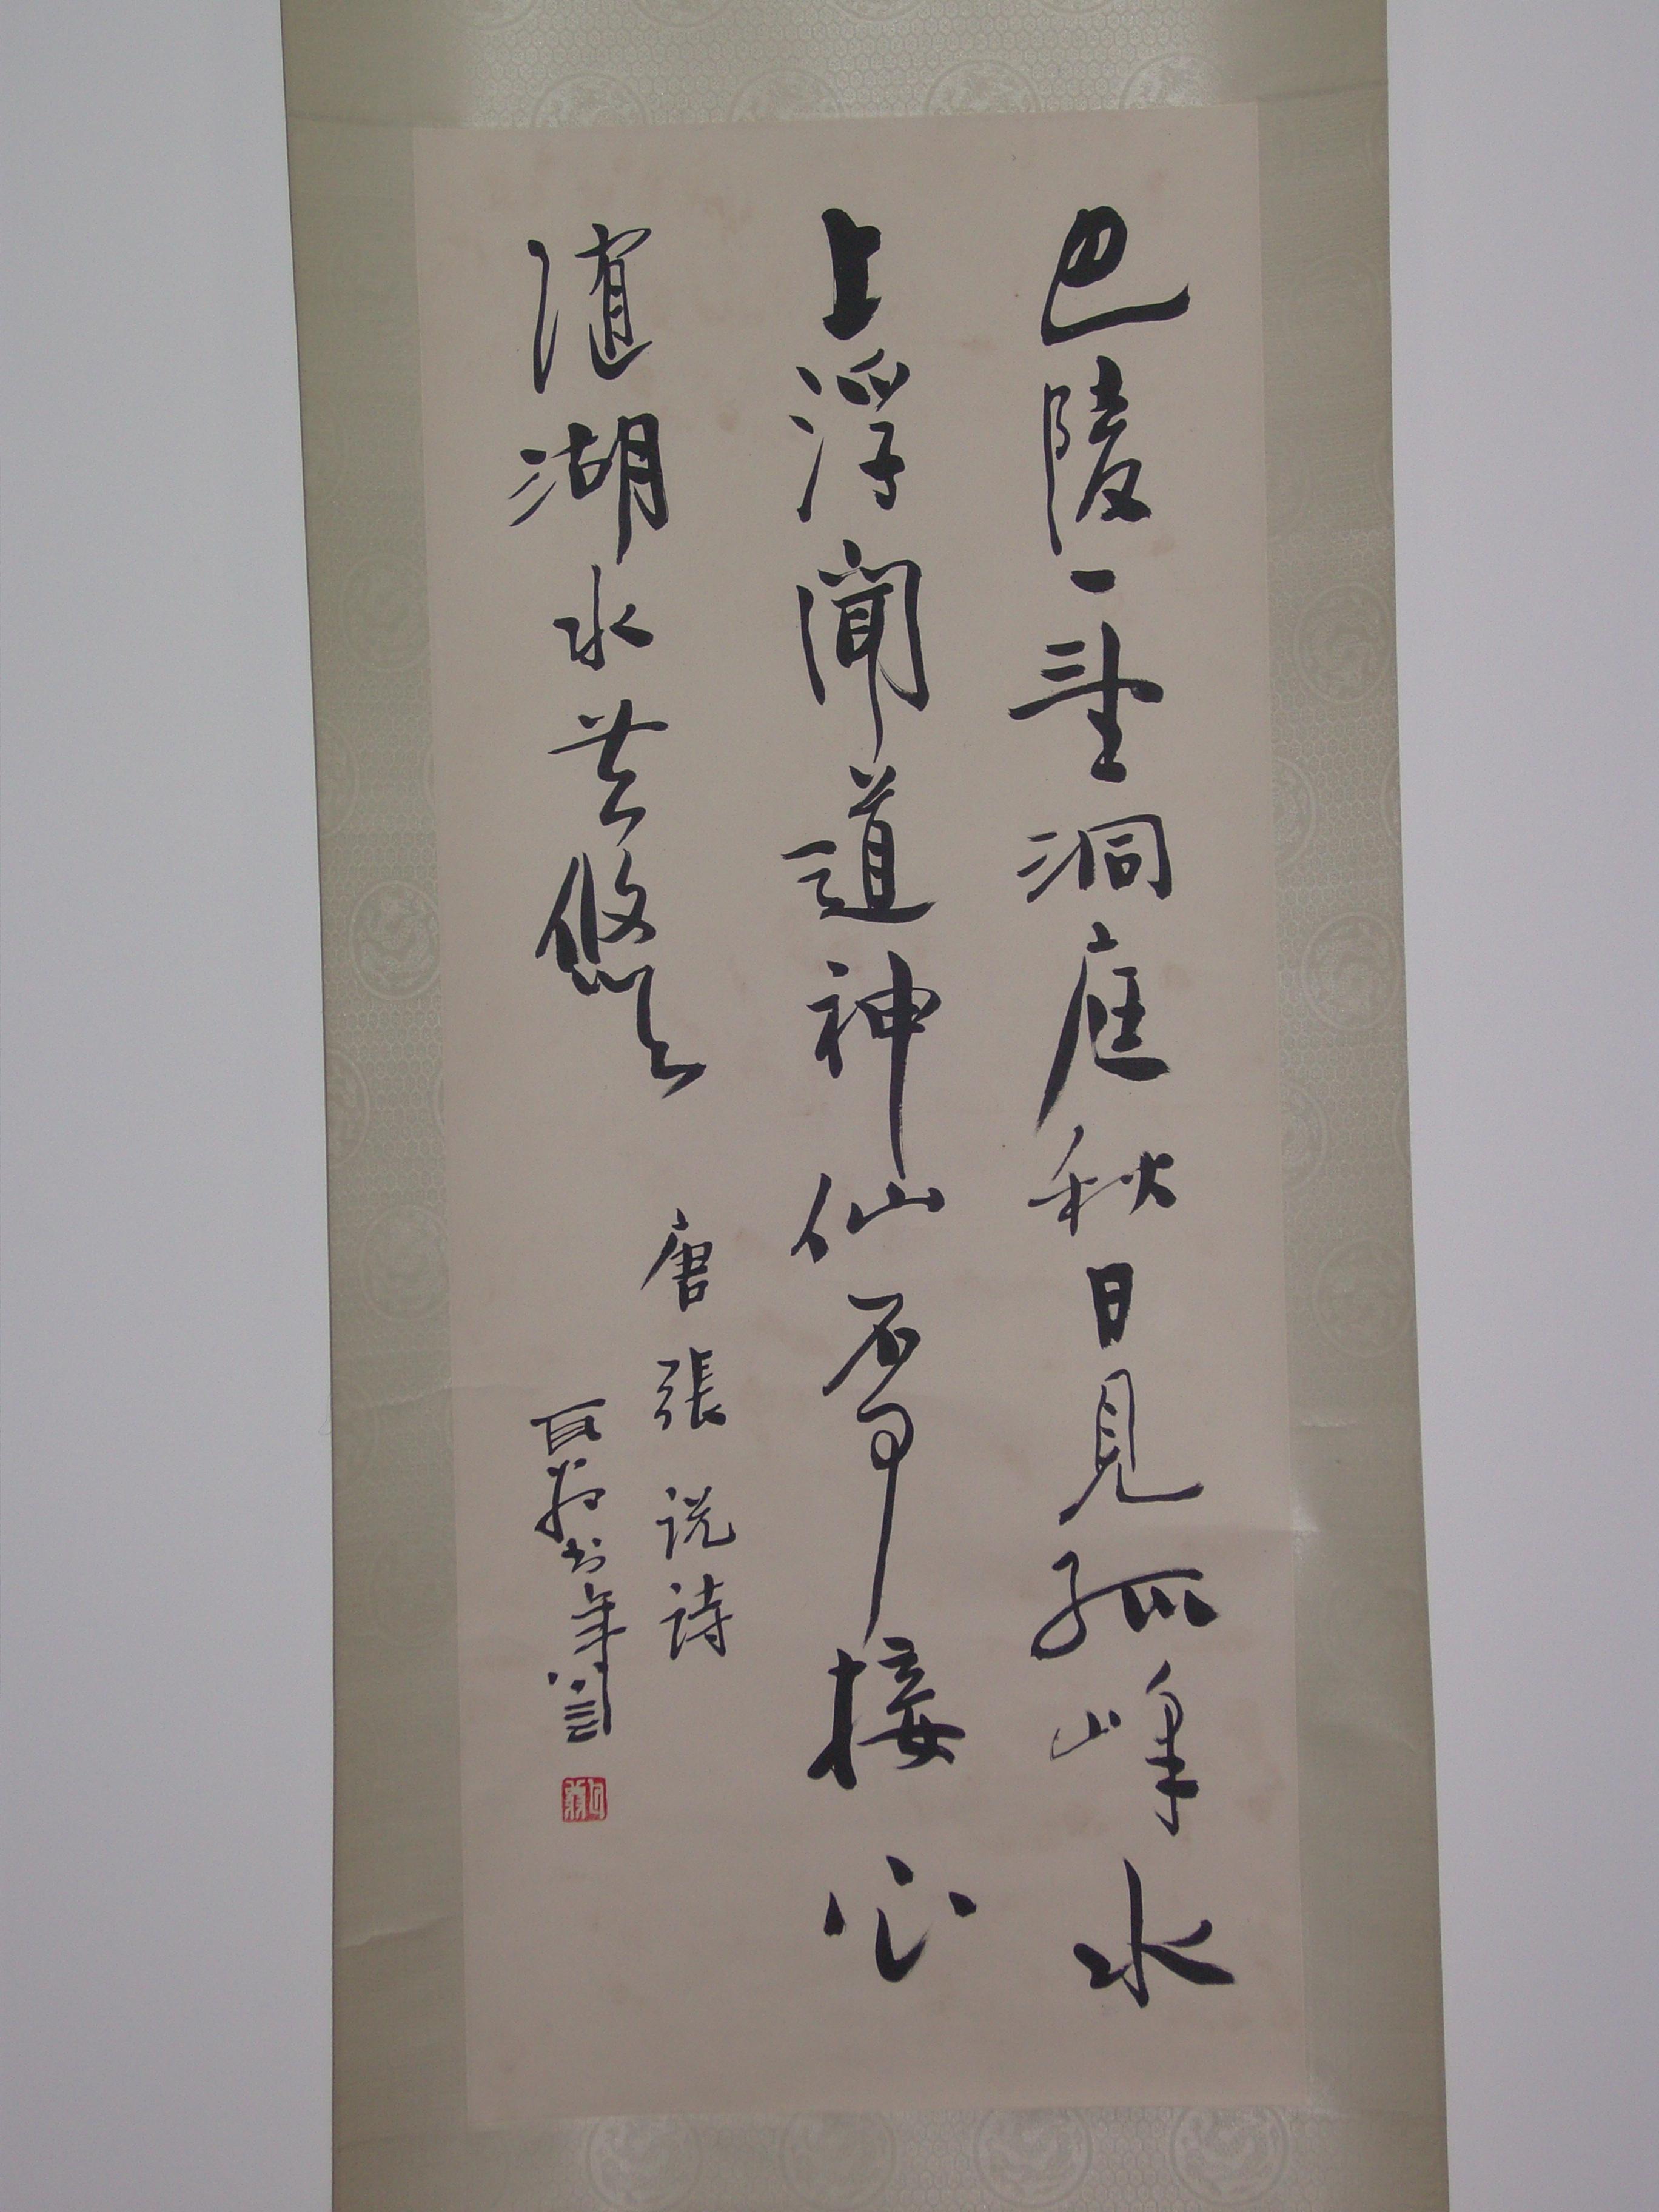 巴陵一望洞庭秋日見孤峰水
上浮聞道神仙不可接心
隨湖水共悠々
唐張說詩
書年